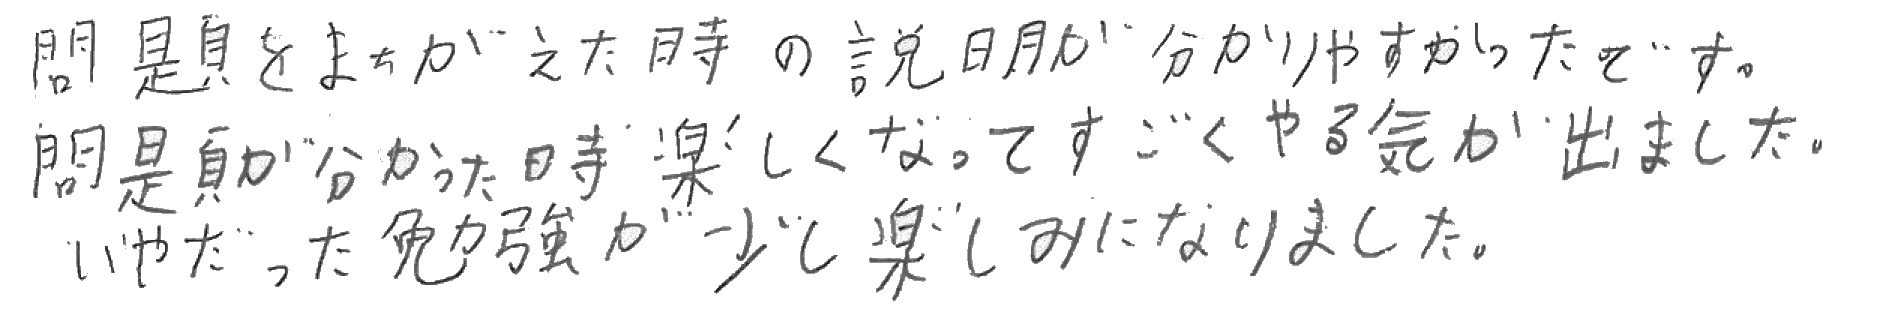 問題をまちがえた時の説明が分かりやすかったです。
問題が分かった時楽しくなってすごくやる気が出ました。
いやだった勉強が少し楽しみになりました。